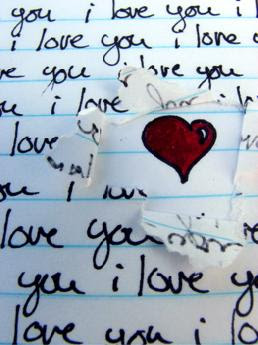 you i love you i l
i love you i love y
love you i love you
you i love
love
i love
love you
you i love y
love you i lo